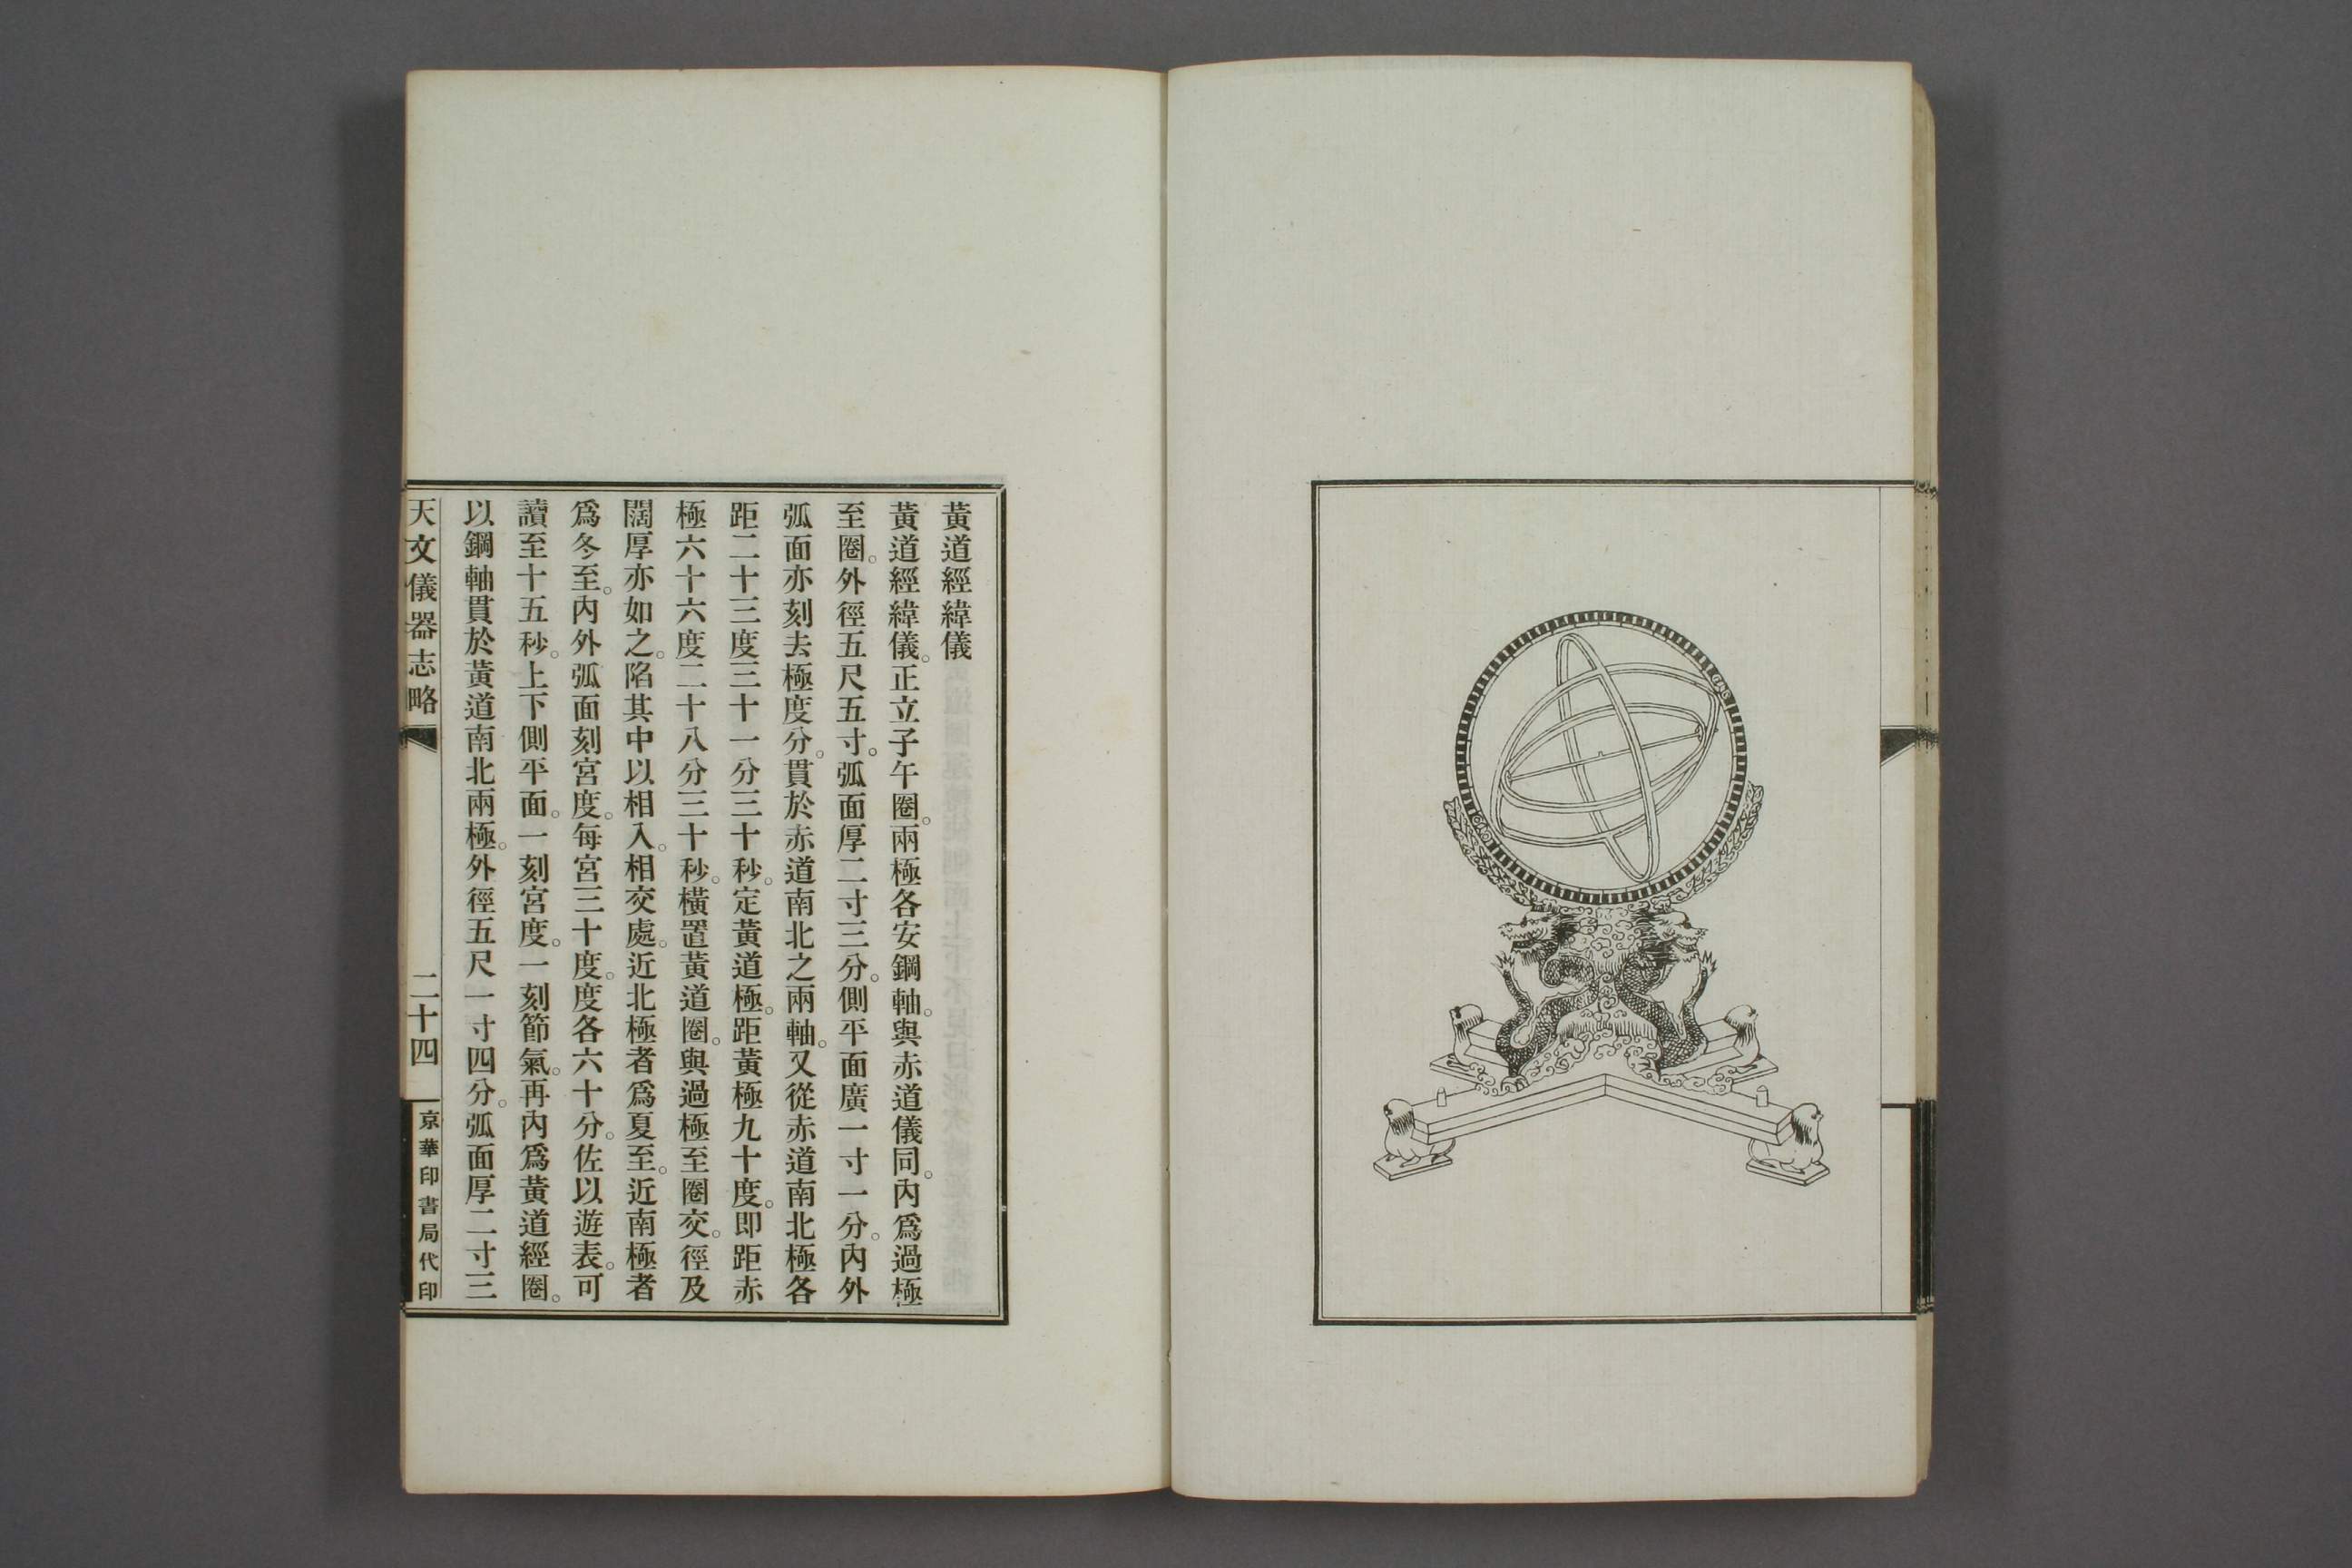 黃道經緯儀
黃道經緯儀。正立子午圈。兩極各安鋼軸。與赤道儀同。內爲過極
至圈。外徑五尺五寸。弧面厚二寸三分。側平面廣一寸一分。內外
弧面亦刻去極度分。貫於赤道南北之兩軸。又從赤道南北極各
距二十三度三十一分三十秒。定黃道極。距黃極九十度。即距赤
極六十六度二十八分三十秒。橫置黃道圈。與過極至圈交。徑及
闊厚亦如之。陷其中以相入。相交處。近北極者爲夏至。近南極者
爲冬至。內外弧面刻宮度。每宮三十度。度各六十分。佐以遊表。可
讀至十五秒。上下側平面。一刻宮度。一刻節氣。再內爲黃道經圈。
以鋼軸貫於黃道南北兩極。外徑五尺一寸四分。弧面厚二寸三
天文儀器志略
二十四
京華印書局代印